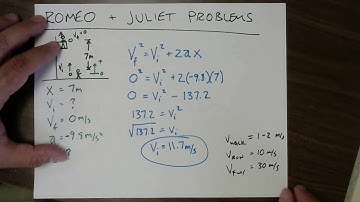 ROMEO + JULIET PROBLEMS
Vf=0
7m
Vi
+
X = 7m
Vi = ?
Vf = 0 m/s
a = -9.8 m/s²
?
Vf² = Vi² + 2ax
0² = Vi² + 2(-9.8)(7)
0 = Vi² - 137.2
137.2 = Vi²
√137.2 = Vi
Vi = 11.7 m/s
VWALK = 1-2 m/s
VRUN = 10 m/s
= 30 m/s